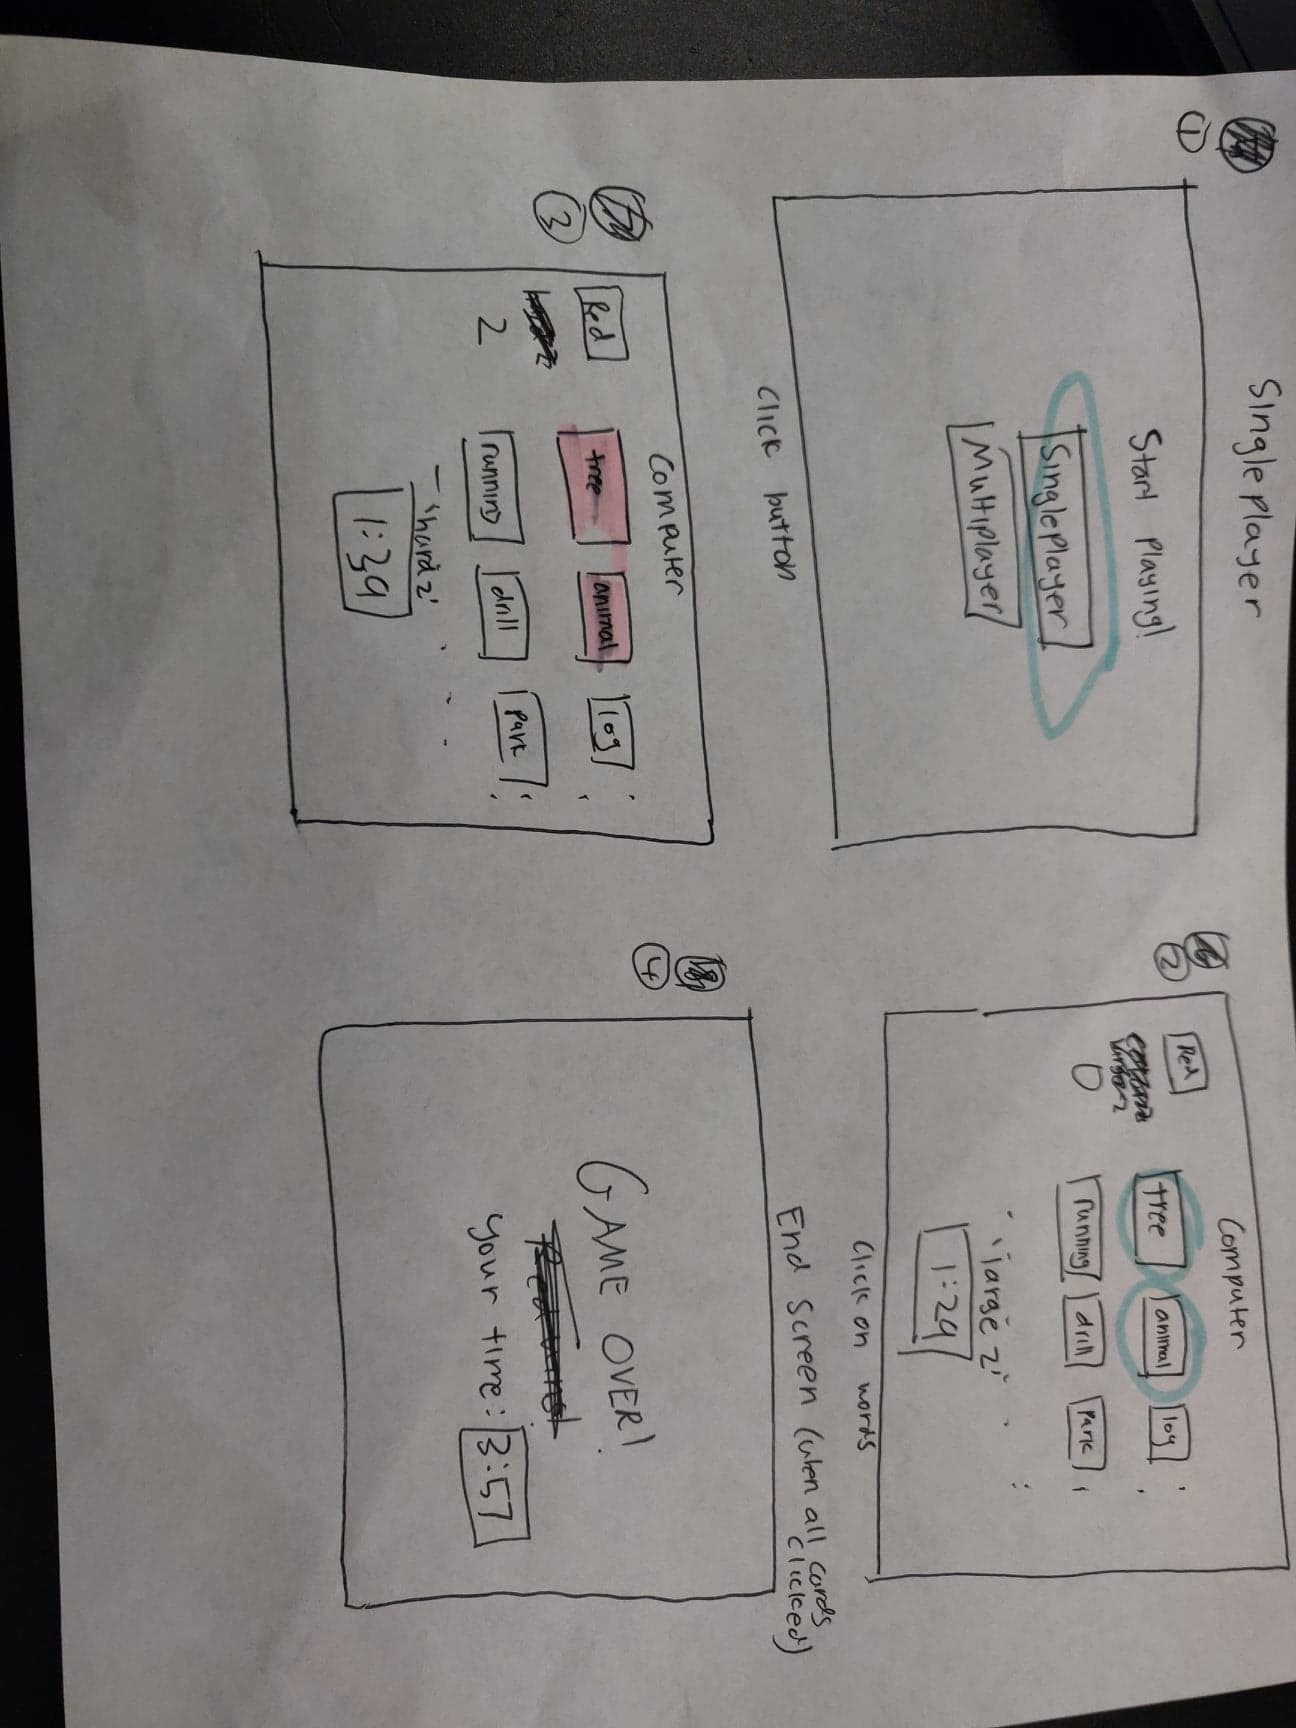 Singleplayer
1
Start Playing!
Singleplayer
Multiplayer
Click button
2
Computer
Red
0
tree animal log
running drill park
"large 2"
1:29
Click on words
3
Computer
Red
2
tree animal log
running drill park
"hard 2"
1:39
End Screen (when all cards
clicked)
4
GAME OVER!
your time: 3:57